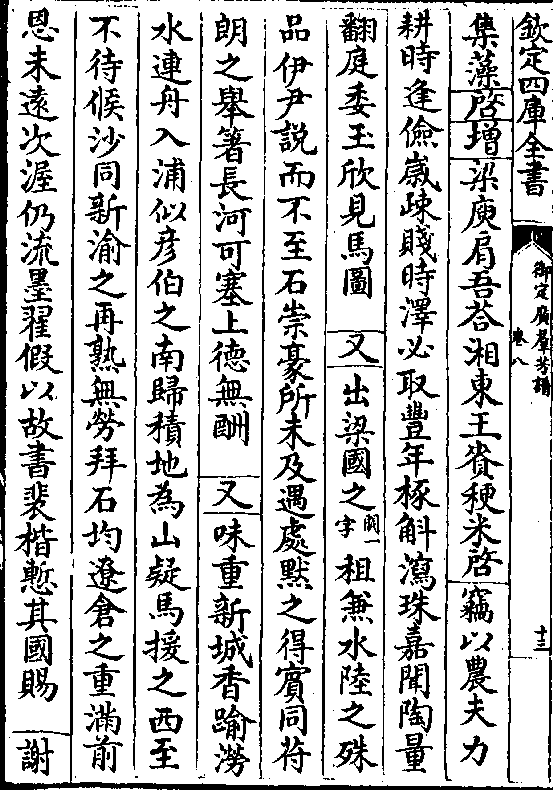 欽定四庫全書
御定廣羣芳譜
卷八
十三
集藻啓增梁庾肩吾荅湘東王賚粳米啓竊以農夫力
耕時逢儉歳疎賤時澤必取豐年㭬斛瀉珠嘉聞陶量
翻庭委玉欣見馬圖 又出梁國之闕一字租兼水陸之殊
品伊尹説而不至石崇豪所未及遇處黙之得賓同符
朗之舉箸長河可塞上徳無酬 又味重新城香踰澇
水連舟入浦似彦伯之南歸積地為山疑馬援之西至
不待候沙同新渝之再熟無勞拜石均遼倉之重滿前
恩未遠次渥仍流墨翟假以故書裴楷慙其國賜 謝